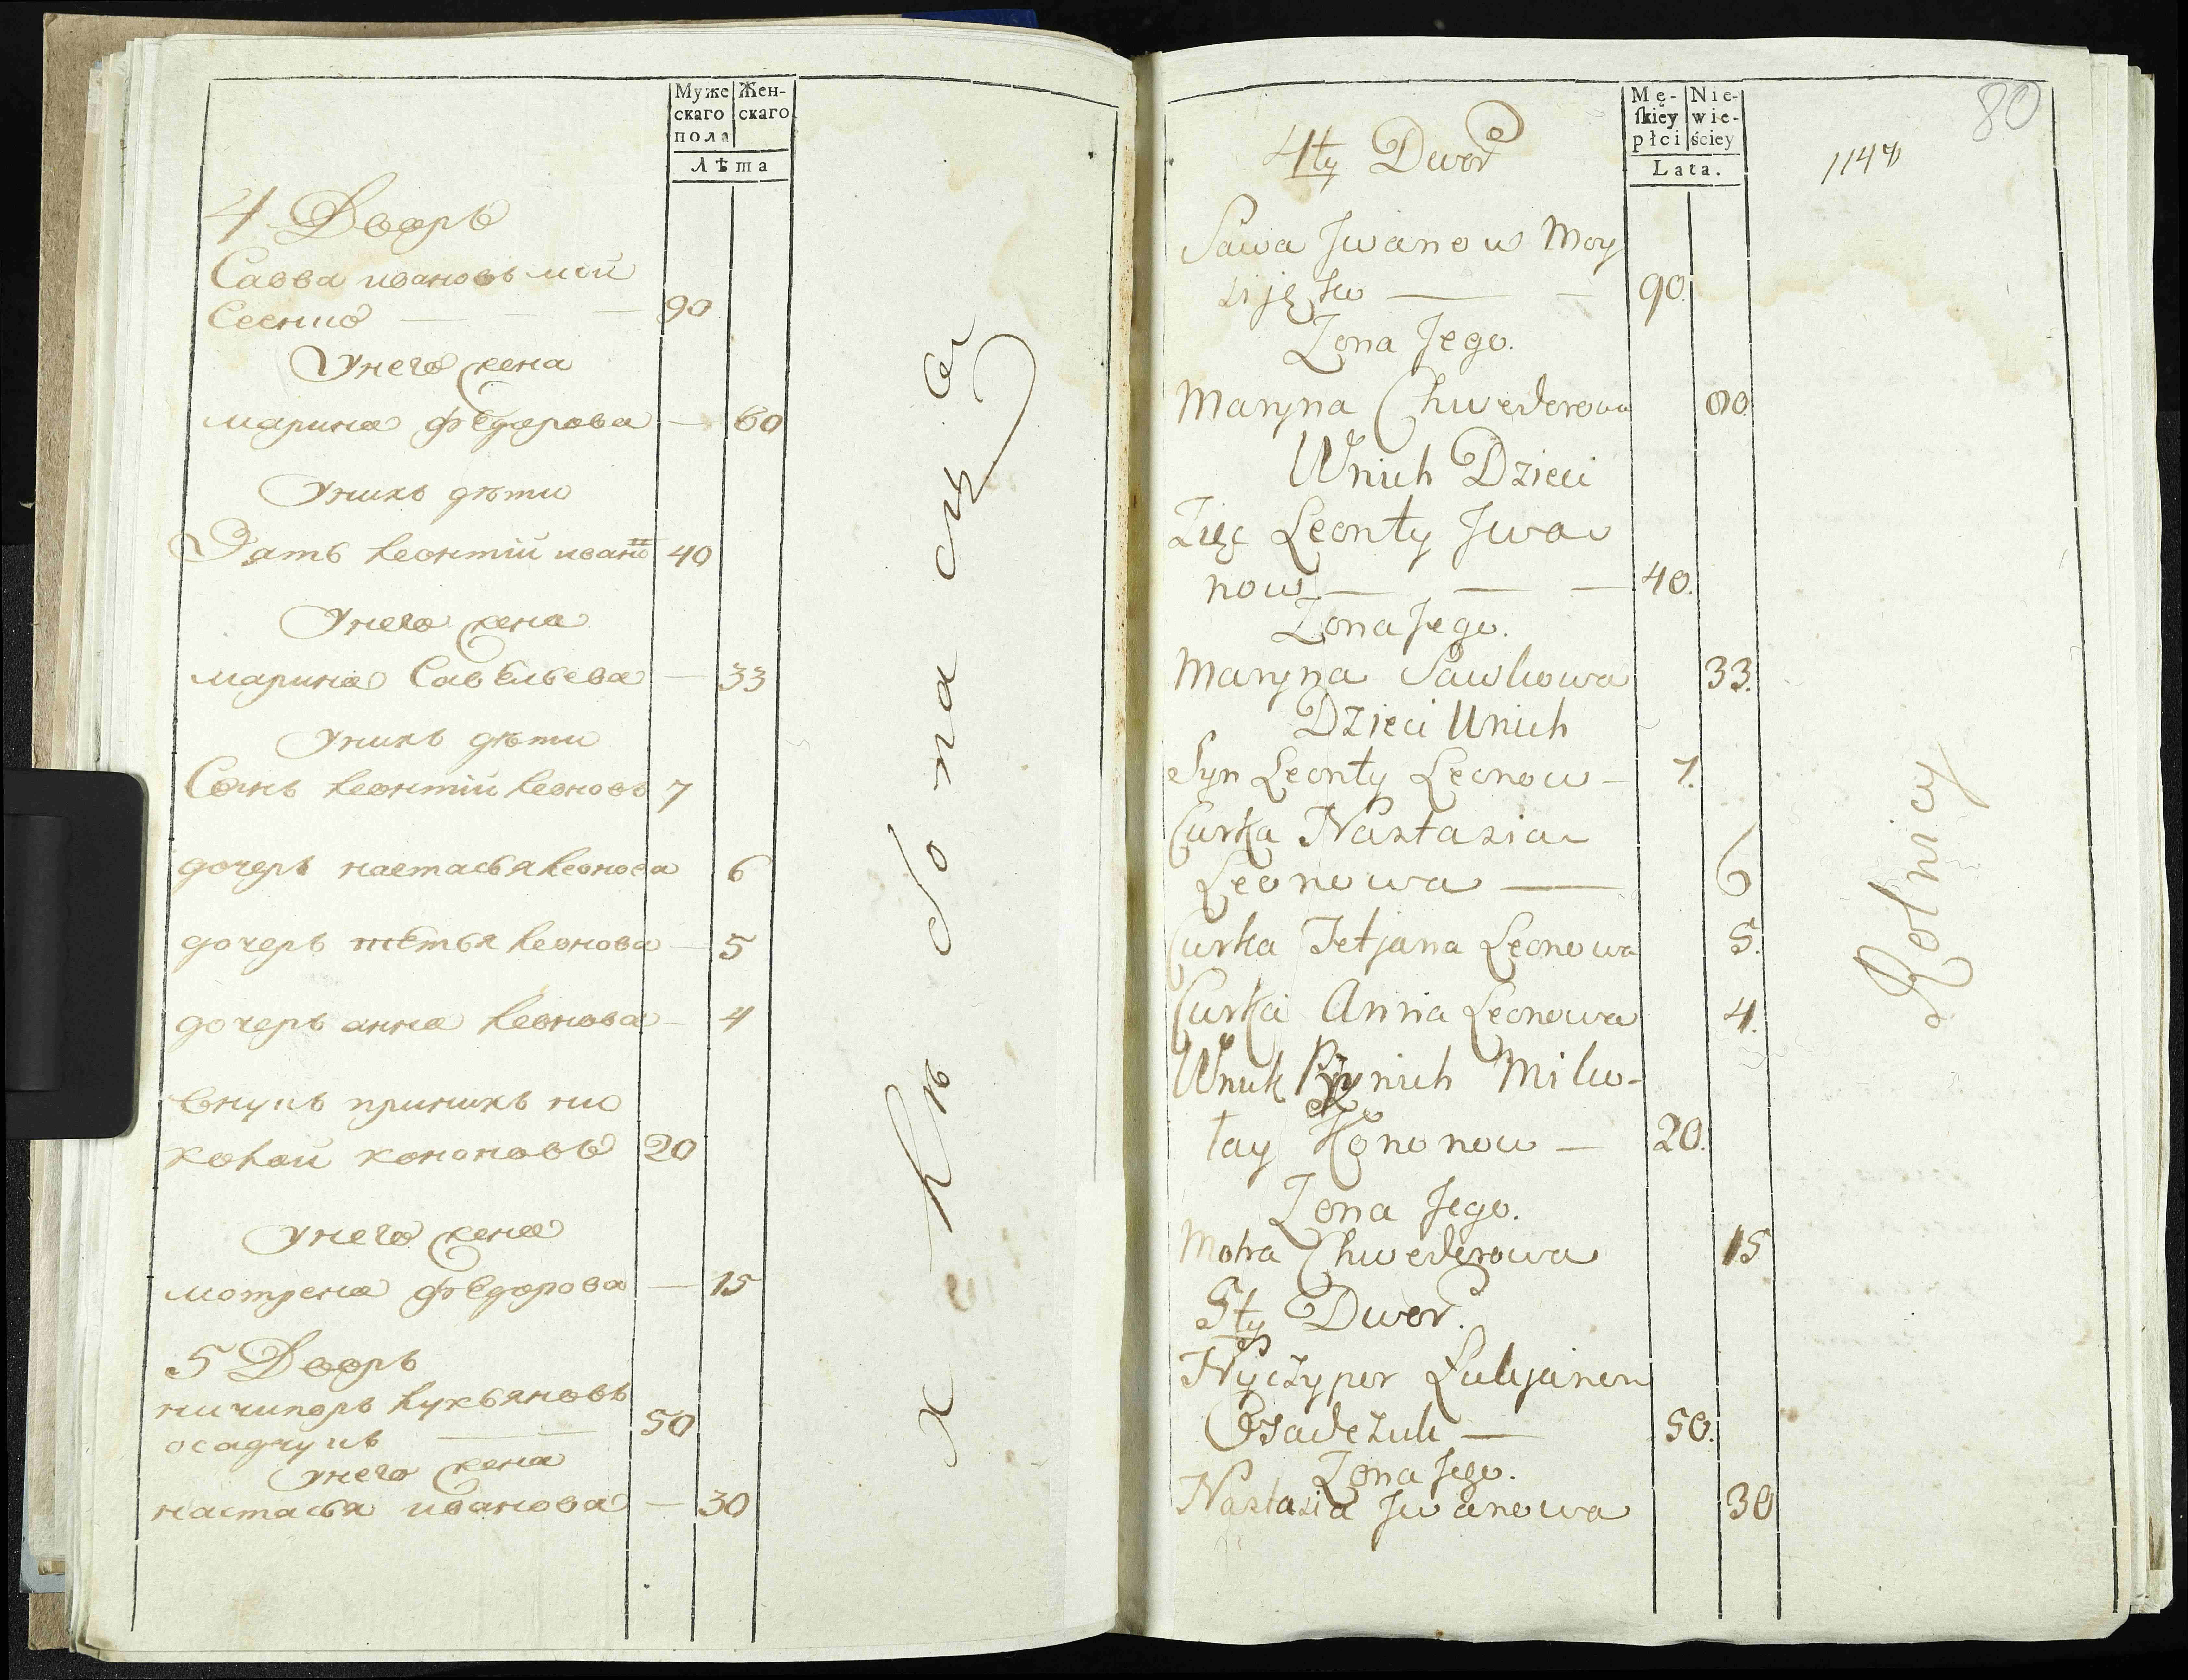 Муже
скаго
пола
Жен-
скаго
Лѣта
4 Дворъ
Савва ивановъ мой
Сеенко — — — 90
Унего жена
марина фѣдорова — 60
Унихъ дѣти
Зять леонтій ивано 40
Унего жена
марина Савѣльева — 33
Унихъ дѣти
Сынъ леонтій леоновъ 7
дочеръ настасья леонова 6
дочеръ тѣтья леонова — 5
дочеръ анна леонова — 4
внукъ принихъ ни
колай кононовъ 20
Унего жена
мотрена фѣдорова — 15
5 Дворъ
ничипоръ лукьяновъ
осадчукъ — 50
Унего жена
настасья иванова — 30
хлѣбопашцы
80
1148
Mę-
skiey
płci
Nie-
wie-
ściey
Lata.
4ty Dwor
Sawa Jwanow Moy
siję — 90.
Zona Jego.
Maryna Chwederowa 80
Wnich Dzieci
Zięć Leonty Jwa
now — — — 40.
Zona Jego.
Maryna Sawkowa 33.
Dzieci Unich
Syn Leonty Leonow — 7.
Curka Nastasia
Leonowa — 6
Curka Tetjana Leonowa 5.
Curka Anna Leonowa 4.
Wnuk Przynich Miko-
łay Kononow — 20.
Zona Jego.
Motra Chwederowa 15
5ty Dwor.
Nyczypor Lukjanow
Osadczuk — 50.
Zona Jego.
Nastasia Jwanowa 30
Rolnicy